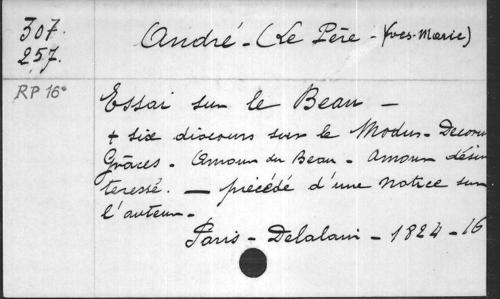 307.
257.
André - (Le Père - (Yves-Marie)
RP 16°
Essai sur le Beau -
+ six discours sur le Modus - Decorum
Grâces - Amour du Beau - Amour désin
teressé. — précédé d'une notice sur
l'auteur -
Paris - Delalain - 1824 - 16